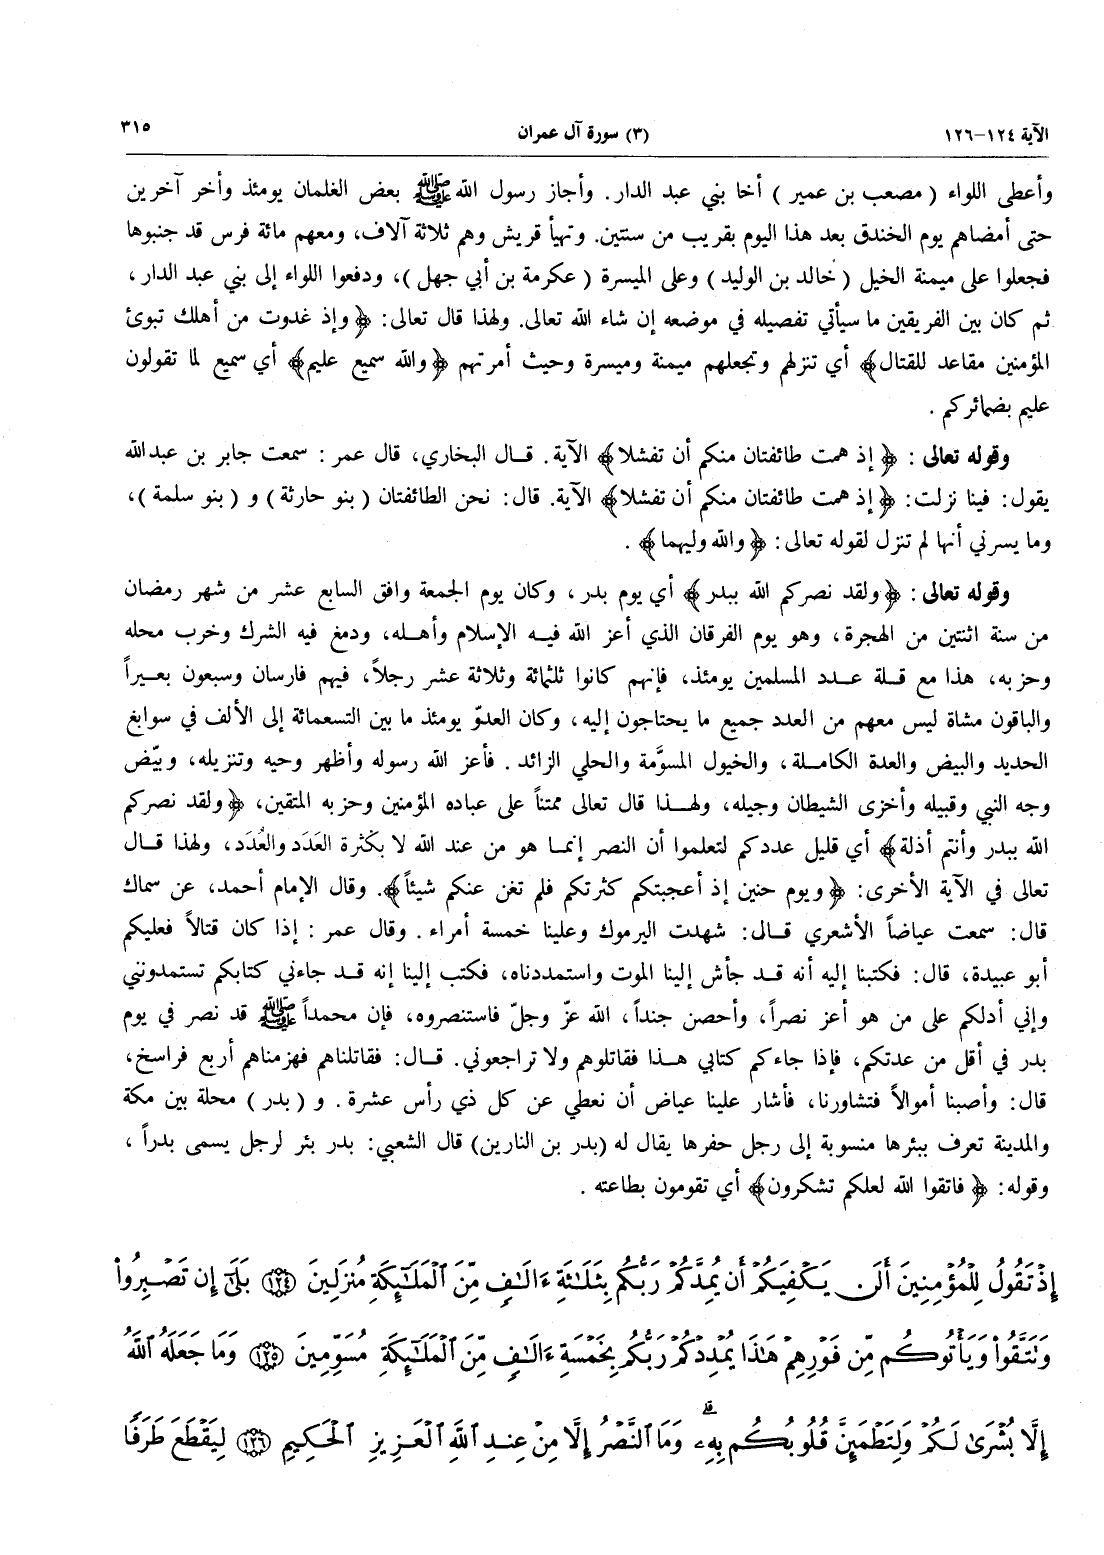 الآية ١٢٤-١٢٦
(٣) سورة آل عمران
٣١٥
وأعطى اللواء ( مصعب بن عمير ) أخا بني عبد الدار. وأجاز رسول الله ﷺ بعض الغلمان يومئذ وأخر آخرين
حتى أمضاهم يوم الخندق بعد هذا اليوم بقريب من سنتين. وتهيأ قريش وهم ثلاثة آلاف، ومعهم مائة فرس قد جنبوها
فجعلوا على ميمنة الخيل ( خالد بن الوليد ) وعلى الميسرة ( عكرمة بن أبي جهل )، ودفعوا اللواء إلى بني عبد الدار ،
ثم كان بين الفريقين ما سيأتي تفصيله في موضعه إن شاء الله تعالى. ولهذا قال تعالى: ﴿ وإذ غدوت من أهلك تبوئ
المؤمنين مقاعد للقتال﴾ أي تنزلهم وتجعلهم ميمنة وميسرة وحيث أمرتهم ﴿والله سميع عليم﴾ أي سميع لما تقولون
عليم بضمائركم .
وقوله تعالى : ﴿ إذ همت طائفتان منكم أن تفشلا﴾ الآية. قال البخاري، قال عمر : سمعت جابر بن عبدالله
يقول: فينا نزلت: ﴿ إذ همت طائفتان منكم أن تفشلا﴾ الآية. قال: نحن الطائفتان ( بنو حارثة ) و ( بنو سلمة )،
وما يسرني أنها لم تنزل لقوله تعالى: ﴿ والله وليهما﴾ .
وقوله تعالى : ﴿ولقد نصركم الله ببدر ﴾ أي يوم بدر ، وكان يوم الجمعة وافق السابع عشر من شهر رمضان
من سنة اثنتين من الهجرة، وهو يوم الفرقان الذي أعز الله فيه الإسلام وأهله، ودمغ فيه الشرك وخرب محله
وحزبه، هذا مع قلة عدد المسلمين يومئذ، فإنهم كانوا ثلثمائة وثلاثة عشر رجلاً، فيهم فارسان وسبعون بعيراً
والباقون مشاة ليس معهم من العدد جميع ما يحتاجون إليه، وكان العدوّ يومئذ ما بين التسعمائة إلى الألف في سوابغ
الحديد والبيض والعدة الكاملة، والخيول المسوَّمة والحلي الزائد . فأعز الله رسوله وأظهر وحيه وتنزيله، وبيّض
وجه النبي وقبيله وأخزى الشيطان وجيله، ولهذا قال تعالى ممتناً على عباده المؤمنين وحزبه المتقين، ﴿ولقد نصركم
الله ببدر وأنتم أذلة﴾ أي قليل عددكم لتعلموا أن النصر إنما هو من عند الله لا بكثرة العَدَد والعُدَد، ولهذا قال
تعالى في الآية الأخرى: ﴿ ويوم حنين إذ أعجبتكم كثرتكم فلم تغن عنكم شيئاً﴾. وقال الإمام أحمد، عن سماك
قال: سمعت عياضاً الأشعري قال: شهدت اليرموك وعلينا خمسة أمراء . وقال عمر : إذا كان قتالاً فعليكم
أبو عبيدة، قال: فكتبنا إليه أنه قد جأش إلينا الموت واستمددناه، فكتب إلينا إنه قد جاءني كتابكم تستمدونني
وإني أدلكم على من هو أعز نصراً، وأحصن جنداً، الله عزّ وجلّ فاستنصروه، فإن محمداً ﷺ قد نصر في يوم
بدر في أقل من عدتكم، فإذا جاءكم كتابي هذا فقاتلوهم ولا تراجعوني. قال: فقاتلناهم فهزمناهم أربع فراسخ،
قال: وأصبنا أموالاً فتشاورنا، فأشار علينا عياض أن نعطي عن كل ذي رأس عشرة . و ( بدر ) محلة بين مكة
والمدينة تعرف ببئرها منسوبة إلى رجل حفرها يقال له (بدر بن النارين) قال الشعبي: بدر بئر لرجل يسمى بدراً ،
وقوله: ﴿ فاتقوا الله لعلكم تشكرون﴾ أي تقومون بطاعته .
إِذْ تَقُولُ لِلْمُؤْمِنِينَ أَلَن يَكْفِيَكُمْ أَن يُمِدَّكُمْ رَبُّكُم بِثَلَٰثَةِ ءَالَٰفٍ مِّنَ ٱلْمَلَٰٓئِكَةِ مُنزَلِينَ ﴿١٢٤﴾ بَلَىٰٓ إِن تَصْبِرُوا۟
وَتَتَّقُوا۟ وَيَأْتُوكُم مِّن فَوْرِهِمْ هَٰذَا يُمْدِدْكُمْ رَبُّكُم بِخَمْسَةِ ءَالَٰفٍ مِّنَ ٱلْمَلَٰٓئِكَةِ مُسَوِّمِينَ ﴿١٢٥﴾ وَمَا جَعَلَهُ ٱللَّهُ
إِلَّا بُشْرَىٰ لَكُمْ وَلِتَطْمَئِنَّ قُلُوبُكُم بِهِۦ ۗ وَمَا ٱلنَّصْرُ إِلَّا مِنْ عِندِ ٱللَّهِ ٱلْعَزِيزِ ٱلْحَكِيمِ ﴿١٢٦﴾ لِيَقْطَعَ طَرَفًا